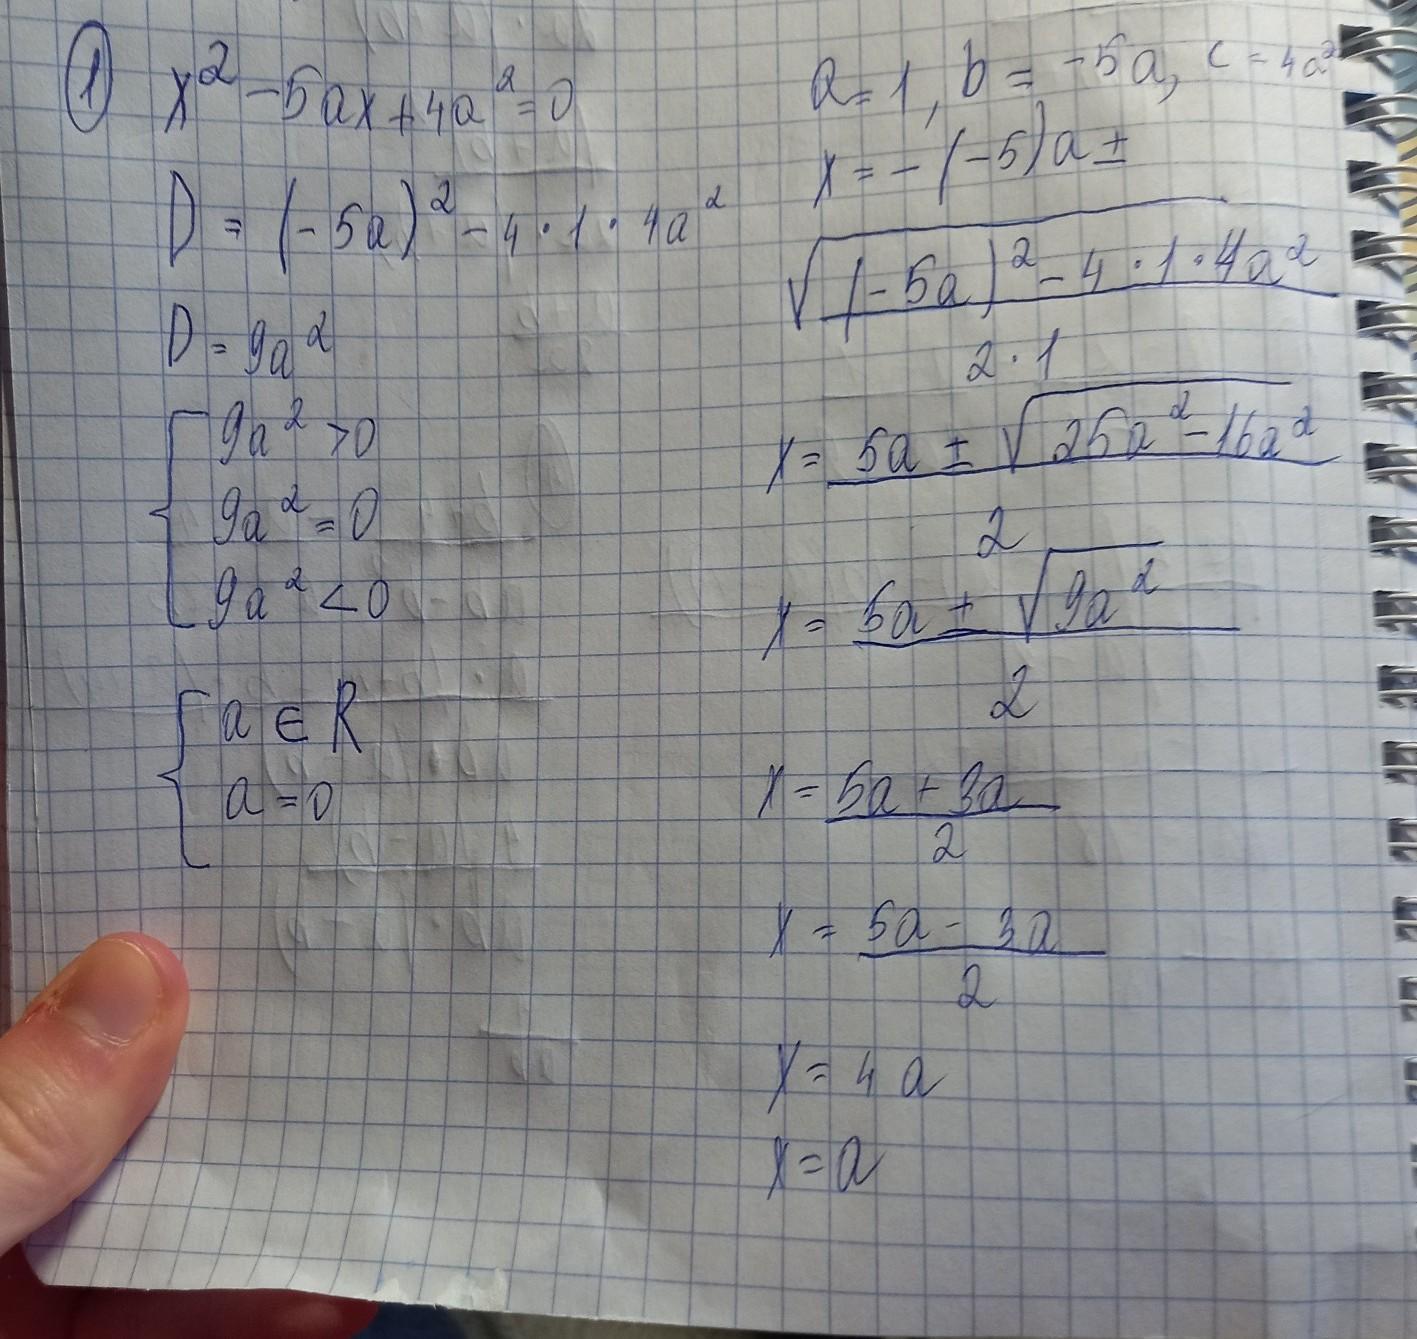 ① x² - 5ax + 4a² = 0
D = (-5a)² - 4 · 1 · 4a²
D = 9a²
9a² > 0
9a² = 0
9a² < 0
a ∈ R
a = 0
a = 1, b = -5a, c = 4a²
x = -(-5)a ±
√(-5a)² - 4 · 1 · 4a²
2 · 1
x = 5a ± √25a² - 16a²
2
x = 5a ± √9a²
2
x = 5a + 3a
2
x = 5a - 3a
2
x = 4a
x = a